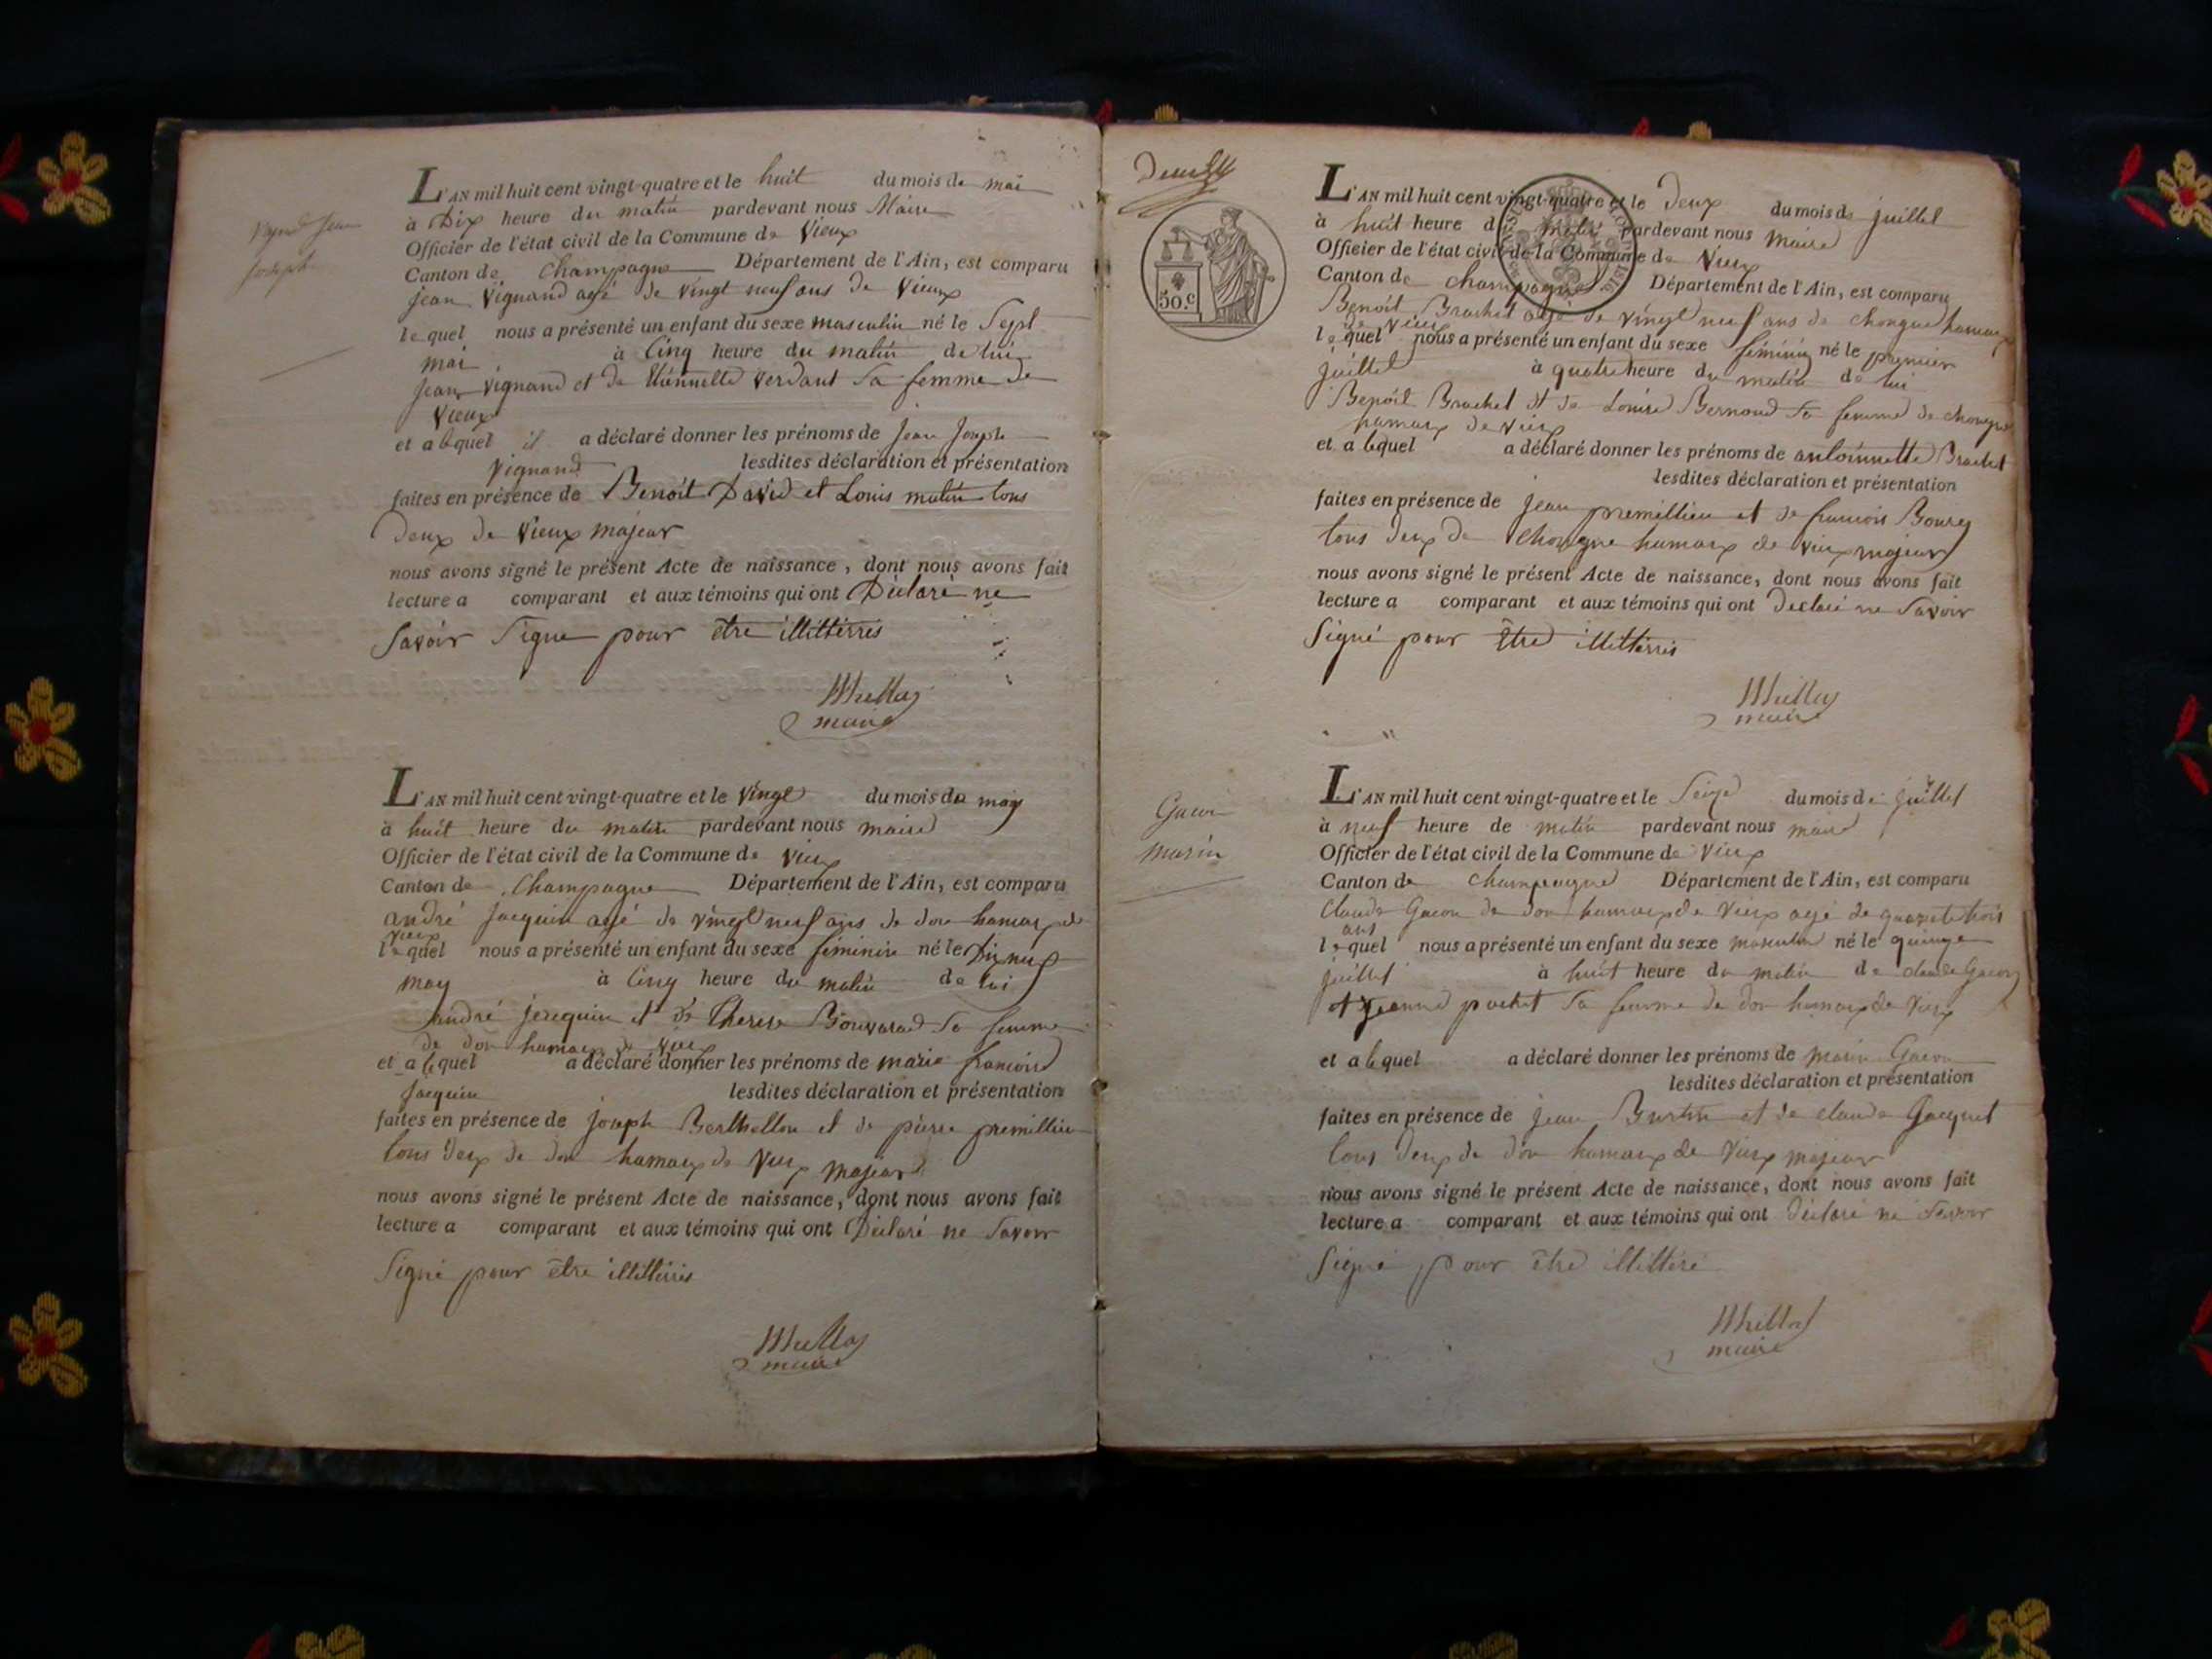 Vignand Jean
Joseph
L'AN mil huit cent vingt-quatre et le huit du mois de mai
à Dix heure du matin pardevant nous Maire
Officier de l'état civil de la Commune de Vieux
Canton de Champagne Département de l'Ain, est comparu
jean Vignand agé de vingt neuf ans de Vieux
lequel nous a présenté un enfant du sexe masculin né le Sept
mai à Cinq heure du matin de lui
jean Vignand et de verdant Sa femme de
Vieux
et alequel il a déclaré donner les prénoms de jean joseph
Vignand lesdites déclaration et présentation
faites en présence de Benoit David et Louis matin tous
Deux de Vieux majeur
nous avons signé le présent Acte de naissance, dont nous avons fait
lecture a comparant et aux témoins qui ont Déclaré ne
Savoir Signe pour être illitterrés
maire
L'AN mil huit cent vingt-quatre et le vingt du mois de may
à huit heure du matin pardevant nous maire
Officier de l'état civil de la Commune de Vieux
Canton de Champagne Département de l'Ain, est comparu
andré jacquin agé de vingt neuf ans de don hamaux de
vieux
lequel nous a présenté un enfant du sexe féminin né le Dix neuf
may à Cinq heure du matin de lui
andré jacquin et de therese Bouvarad Sa femme
de don hamaux de vieux
et alequel a déclaré donner les prénoms de marie francoise
Jacquin lesdites déclaration et présentation
faites en présence de joseph Berthellon et de pierre premillieu
tous deux de don hamaux de Vieux majeurs
nous avons signé le présent Acte de naissance, dont nous avons fait
lecture a comparant et aux témoins qui ont Déclaré ne Savoir
Signé pour être illitterrés
maire
50.c
L'AN mil huit cent vingt-quatre et le Deux du mois de juillet
à huit heure d matin pardevant nous maire
Officier de l'état civil de la Commune de Vieux
Canton de Champagne Département de l'Ain, est comparu
Benoit Brachet agé de vingt neuf ans de chongne hamaux
de vieux
lequel nous a présenté un enfant du sexe féminin né le premier
juillet à quatre heure du matin de lui
Benoit Brachet et de Louise Bernoud Sa femme de chongne
hamaux de vieux
et alequel a déclaré donner les prénoms de antoinnette Brachet
lesdites déclaration et présentation
faites en présence de jean premillieu et de francois
tous deux de Chongne hamaux de vieux majeurs
nous avons signé le présent Acte de naissance, dont nous avons fait
lecture a comparant et aux témoins qui ont Declaré ne Savoir
Signé pour être illitterrés
maire
Gacon
Marin
L'AN mil huit cent vingt-quatre et le Seize du mois de juillet
à neuf heure de matin pardevant nous maire
Officier de l'état civil de la Commune de Vieux
Canton de Champagne Département de l'Ain, est comparu
Claude Gacon de don hamaux de Vieux agé de quarente trois
ans
lequel nous a présenté un enfant du sexe masculin né le quinze
juillet à huit heure du matin de claude Gacon
et jeanne pochet Sa femme de don hamaux de Vieux
et alequel a déclaré donner les prénoms de marin Gacon
lesdites déclaration et présentation
faites en présence de jean Burtin et de claude Jacquet
tous deux de don hamaux de Vieux majeur
nous avons signé le présent Acte de naissance, dont nous avons fait
lecture a comparant et aux témoins qui ont Déclaré ne Savoir
Signé pour être illitteré
maire